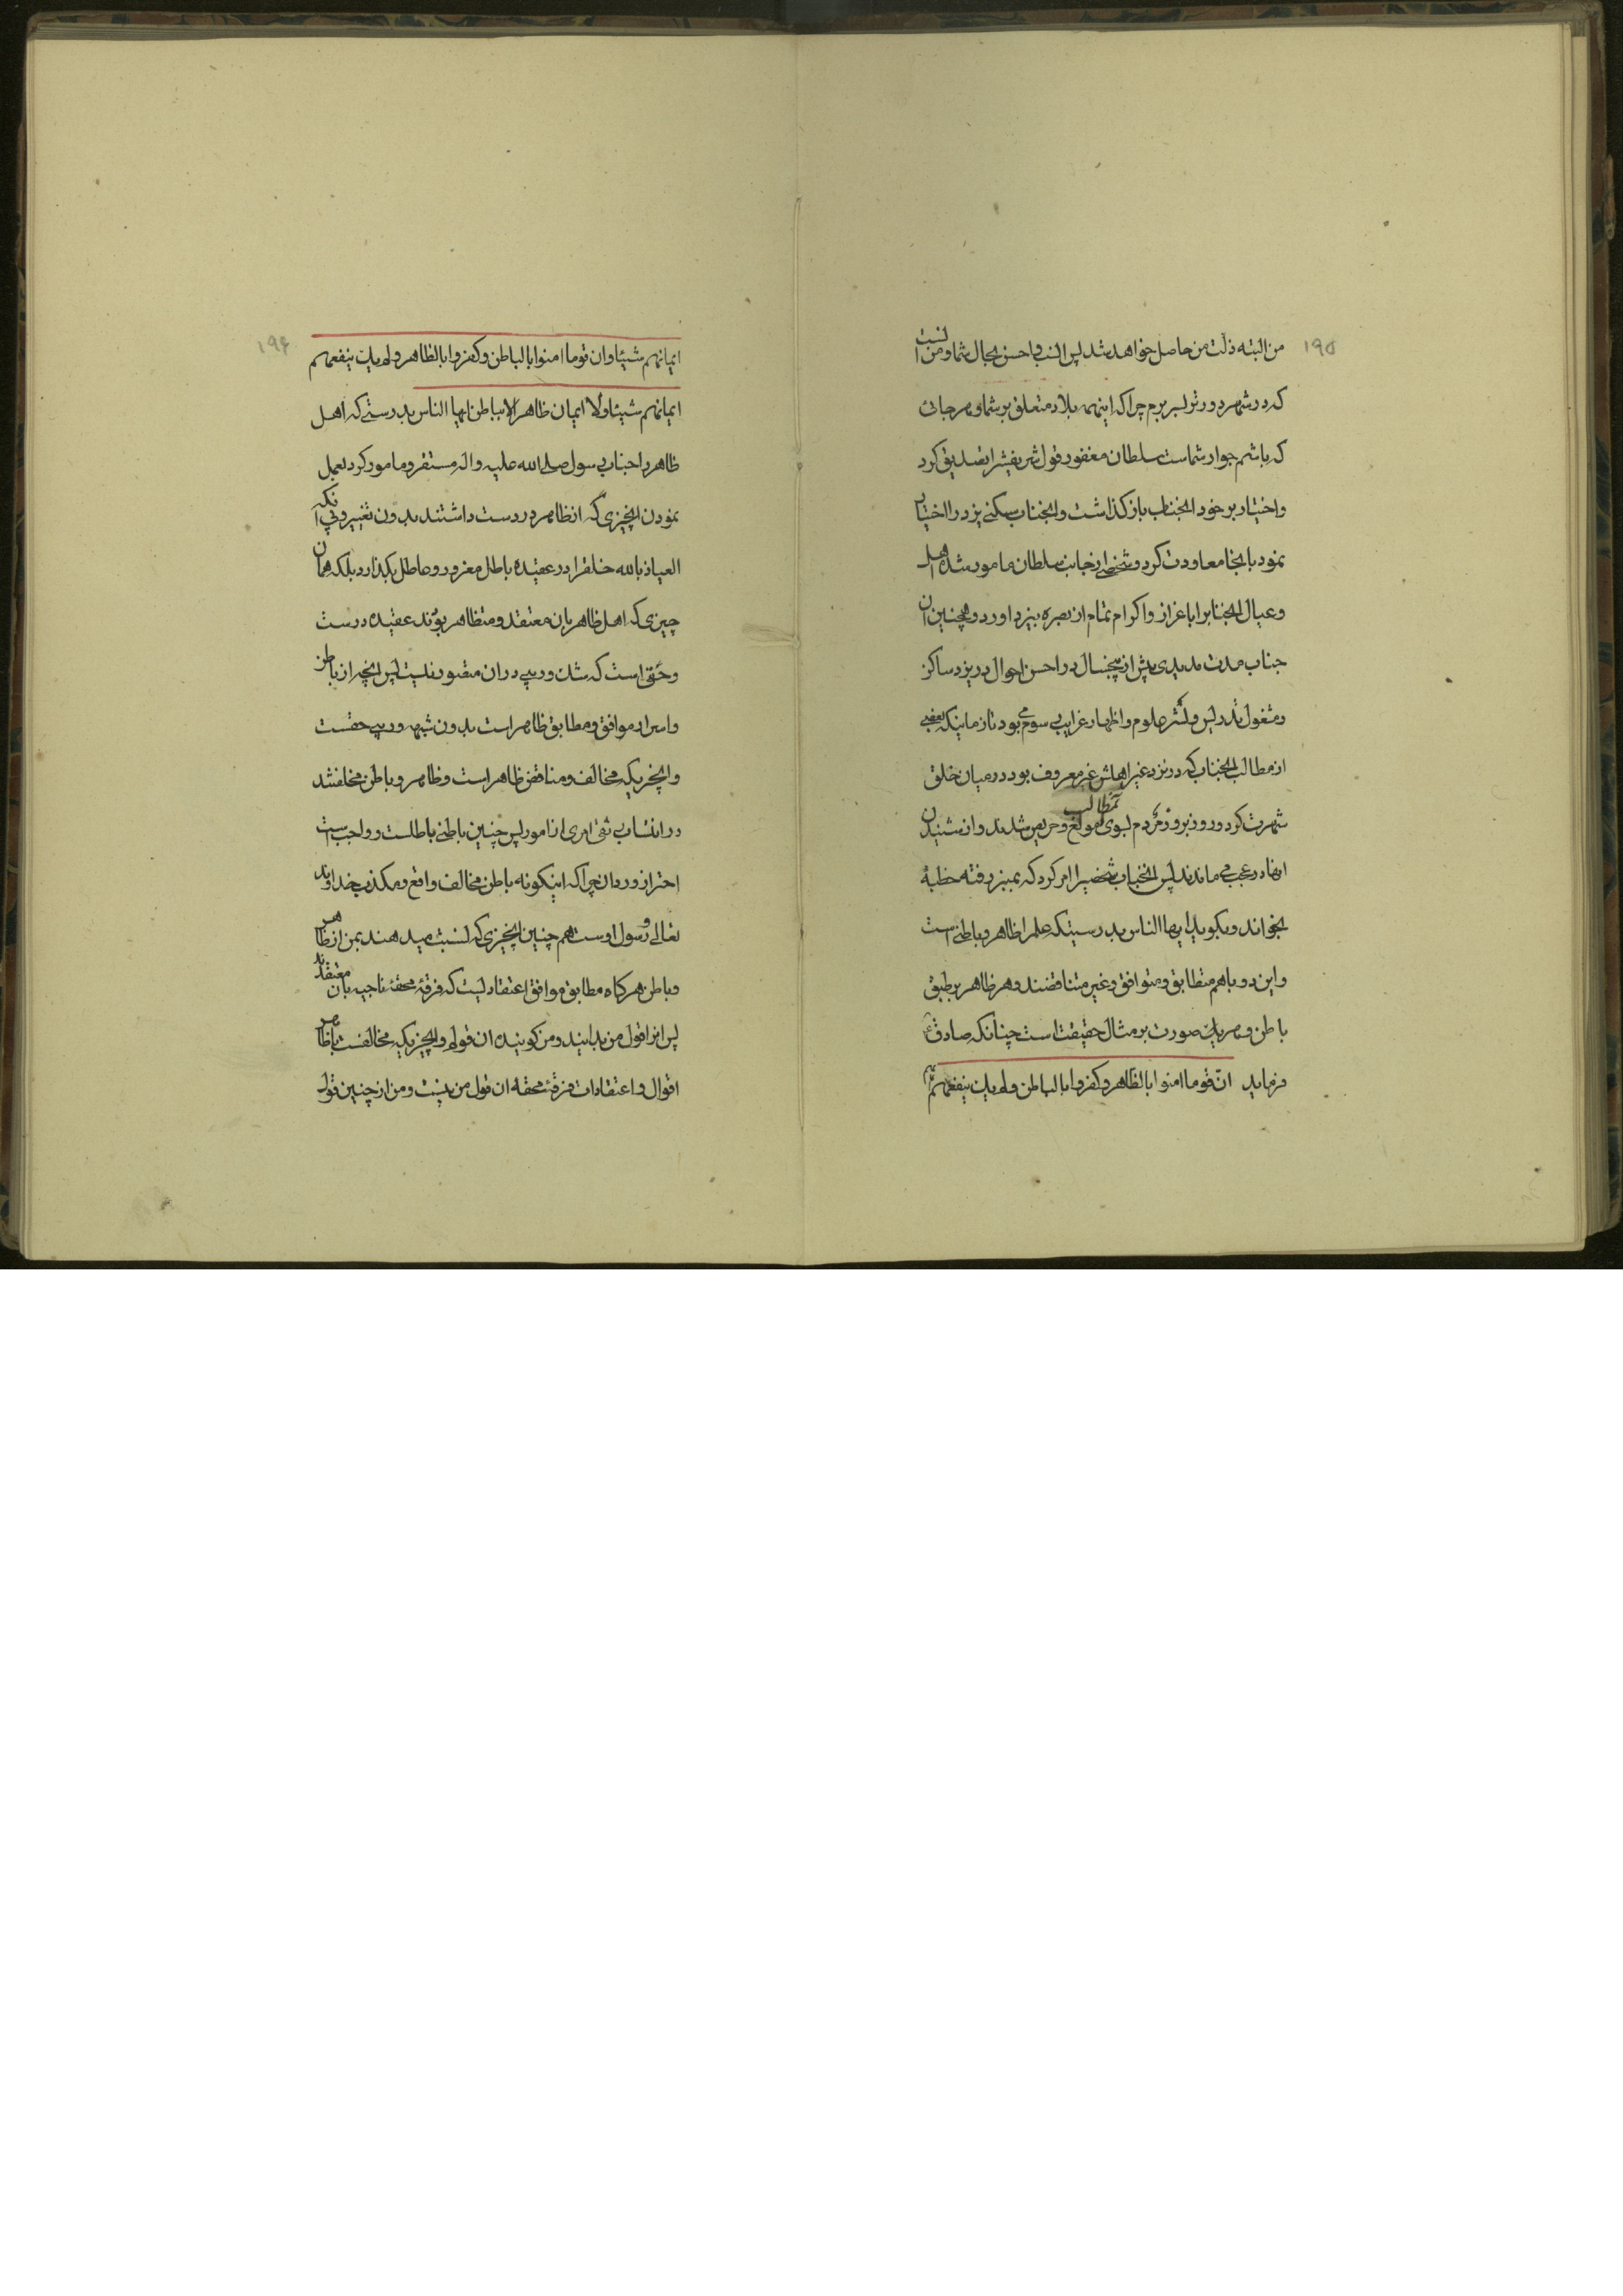 ۱۹۵
من البته ذلت من حاصل خواهد شد پس انسب و احسن بحال شما و من آنست
که در شهر دورتر بسر برم چرا که اینهمه بلاد متعلق بر شما و هر جائی
که باشم جوار شماست سلطان مغفور قول شریفش را تصدیق کرد
و اختیار بر خود آنجناب باز گذاشت و آنجناب سکنی یزد را اختیار
نمود بآنجا معاودت کرد و شخصی از جانب سلطان مامور شده اهل
و عیال آنجناب را باعزاز و اکرام تمام از بصره بیزد آورد و همچنین آن
جناب مدت مدیدی بیش از پنجسال در احسن احوال در یزد ساکن
و مشغول تدریس و نشر علوم و اظهار غرایب رسوم می بود تا زمانیکه بعضی
از مطالب آنجناب که در نزد غیر اهلش غیر معروف بود در میان خلق
شهرت کرد و روز بروز مردم بسوی آنمطالب مولع و حریص شدند و از شنیدن
آنها در عجب می ماندند پس آنجناب شخصیرا امر کرد که بمنبر رفته خطبهٔ
بخواند و بگوید ایها الناس بدرستیکه علم را ظاهر و باطنی است
و این دو باهم متطابق و متوافق و غیر متناقضند و هر ظاهر بر طبق
باطن و هر یک صورت بر مثال حقیقت است چنانکه صادق ع
فرماید ان قوما امنوا بالظاهر و کفروا بالباطن و لم یک ینفعهم
۱۹۶
ایمانهم شیئا و ان قوما امنوا بالباطن و کفروا بالظاهر و لم یک ینفعهم
ایمانهم شیئا و لا ایمان ظاهر الا بباطن ایها الناس بدرستی که اهل
ظاهر را جناب رسول صلی الله علیه و اله مستقر و مامور کرد بعمل
نمودن آنچیزی که از ظاهر در دست داشتند بدون تغییر و بی آنکه
العیاذ بالله خلقرا در عقیده باطل مغرور و عاطل بگذارد بلکه همان
چیزی که اهل ظاهر بان معتقد و متظاهر بوند عقیده درست
و حقی است که شک و ریبی در ان متصور نیست پس آنچه از باطن
و اسرار موافق و مطابق ظاهر است بدون شبهه و ریبی حقست
و آنچیزیکه مخالف و مناقض ظاهر است و ظاهر و باطن مخالفند
در انتساب شیئی امری از امور پس چنین باطنی باطلست و واجب است
احتراز و ردآن چرا که اینگونه باطن مخالف واقع و مکذب خداوند
تعالی و رسول اوست همچنین آنچیزی که نسبت میدهند بمن از ظاهر
و باطن هرگاه مطابق و موافق اعتقادیست که فرقهٔ محقهٔ ناجیه بآن معتقدند
پس آنرا قول من بدانید و من گوینده ان قولم و آنچیزیکه مخالفست با ظاهر
اقوال و اعتقادات فرقهٔ محقه ان قول من نیست و من از چنین قول